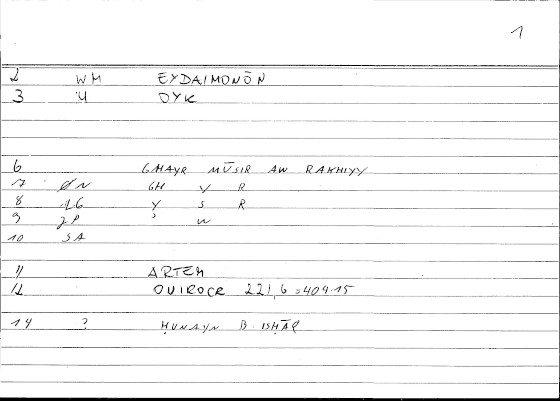 1
2 WM EYDAIMONŌN
3 Ü OYK
6 GHAYR MŪSIR AW RAKHIYY
7 ØN GH Y R
8 1G Y S R
9 JP ' W
10 SA
11 ARTEM
12 OUIROCR 221,6 = 409.15
14 ? ḤUNAYN B. ISḤĀQ